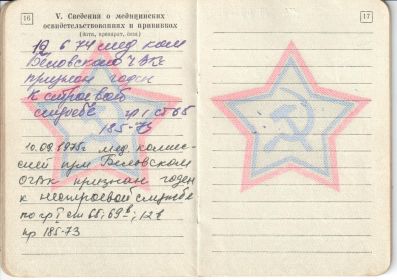 16
V. Сведения о медицинских
освидетельствованиях и прививках
(дата, препарат, доза)
19 6 74 мед ком
Беловского ГВК
признан годен
к строевой
службе гр I ст 66
185-73
10.09.1975г. мед. комис-
сией при Беловском
ОГВК признан годен
к нестроевой службе
по гр I ст 66; 69в; 12в
пр 185-73
17